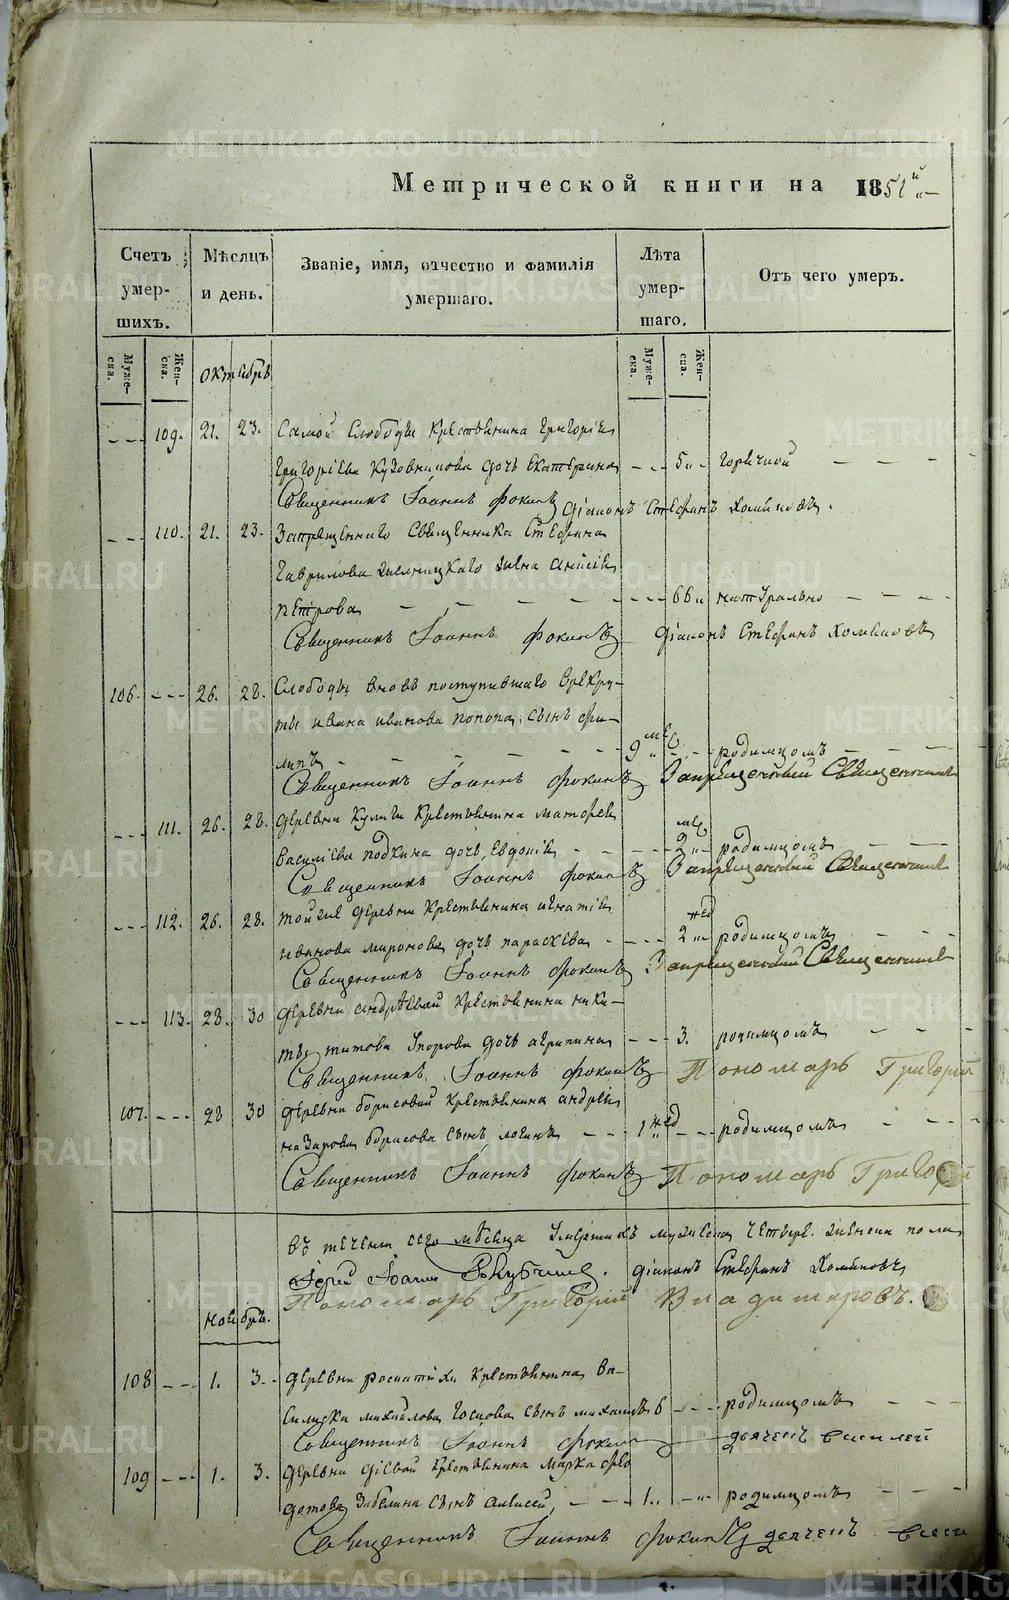 Метрической книги на 1851й
Счетъ умер-шихъ.
Мѣсяцъ и день.
Званіе, имя, отчество и фамилія умершаго.
Лѣта умер-шаго.
Отъ чего умеръ.
Муже-ска.
Жен-ска.
октябрь
Муже-ска.
Жен-ска.
109. 21. 23. Самой Слободы крестьянина Григорія
Григоріева дочь Екатерина 5 горячкой
Священникъ Іоаннъ Фокинъ Діаконъ Стефанъ Хомяковъ.
110. 21. 23. Запрещеннаго священника Стефана
Гаврилова жена Анисія
Петрова 66 натурально
Священникъ Іоаннъ Фокинъ Діаконъ Стефанъ Хомяковъ
106. 26. 28. Слободы вновь поступившаго в рекру-
ты Ивана Иванова Попова сынъ Фи-
липъ 9 мес родимцомъ
Священникъ Іоаннъ Фокинъ Запрещенный Священникъ
111. 26. 28. деревни Кулиги крестьянина Матфея
Василіева дочь Евдокія 2 мес родимцомъ
Священникъ Іоаннъ Фокинъ Запрещенный Священникъ
112. 26. 28. той же деревни крестьянина Игнатія
Иванова Миронова дочь Параскева 2 нед родимцомъ
Священникъ Іоаннъ Фокинъ Запрещенный Священникъ
113. 28. 30 деревни Андрѣевой крестьянина Ники-
ты Титова дочь Агрипина 3. родимцомъ
Священникъ Іоаннъ Фокинъ Пономарь Григорій
107. 28 30 деревни Борисовой крестьянина Андрея
Назарова Борисова сынъ Логинъ 1 нед родимцомъ
Священникъ Іоаннъ Фокинъ Пономарь Григорій
въ течении сего месяца умершихъ мужеска четыре женска пола
Іерей Іоаннъ Діаконъ Стефанъ Хомяковъ
Пономарь Григорій Владимировъ.
ноябрь.
108 1. 3. деревни крестьянина Ва-
Михайлова сынъ Михаилъ 6 родимцомъ
Священникъ Іоаннъ Фокинъ дьячекъ Василей
109 1. 3. деревни крестьянина Марка Фео
дотова Забелина сынъ Алексей, 1 родимцомъ
Священникъ Іоаннъ Фокинъ дьячекъ Васи
METRIKI.GASO-URAL.RU